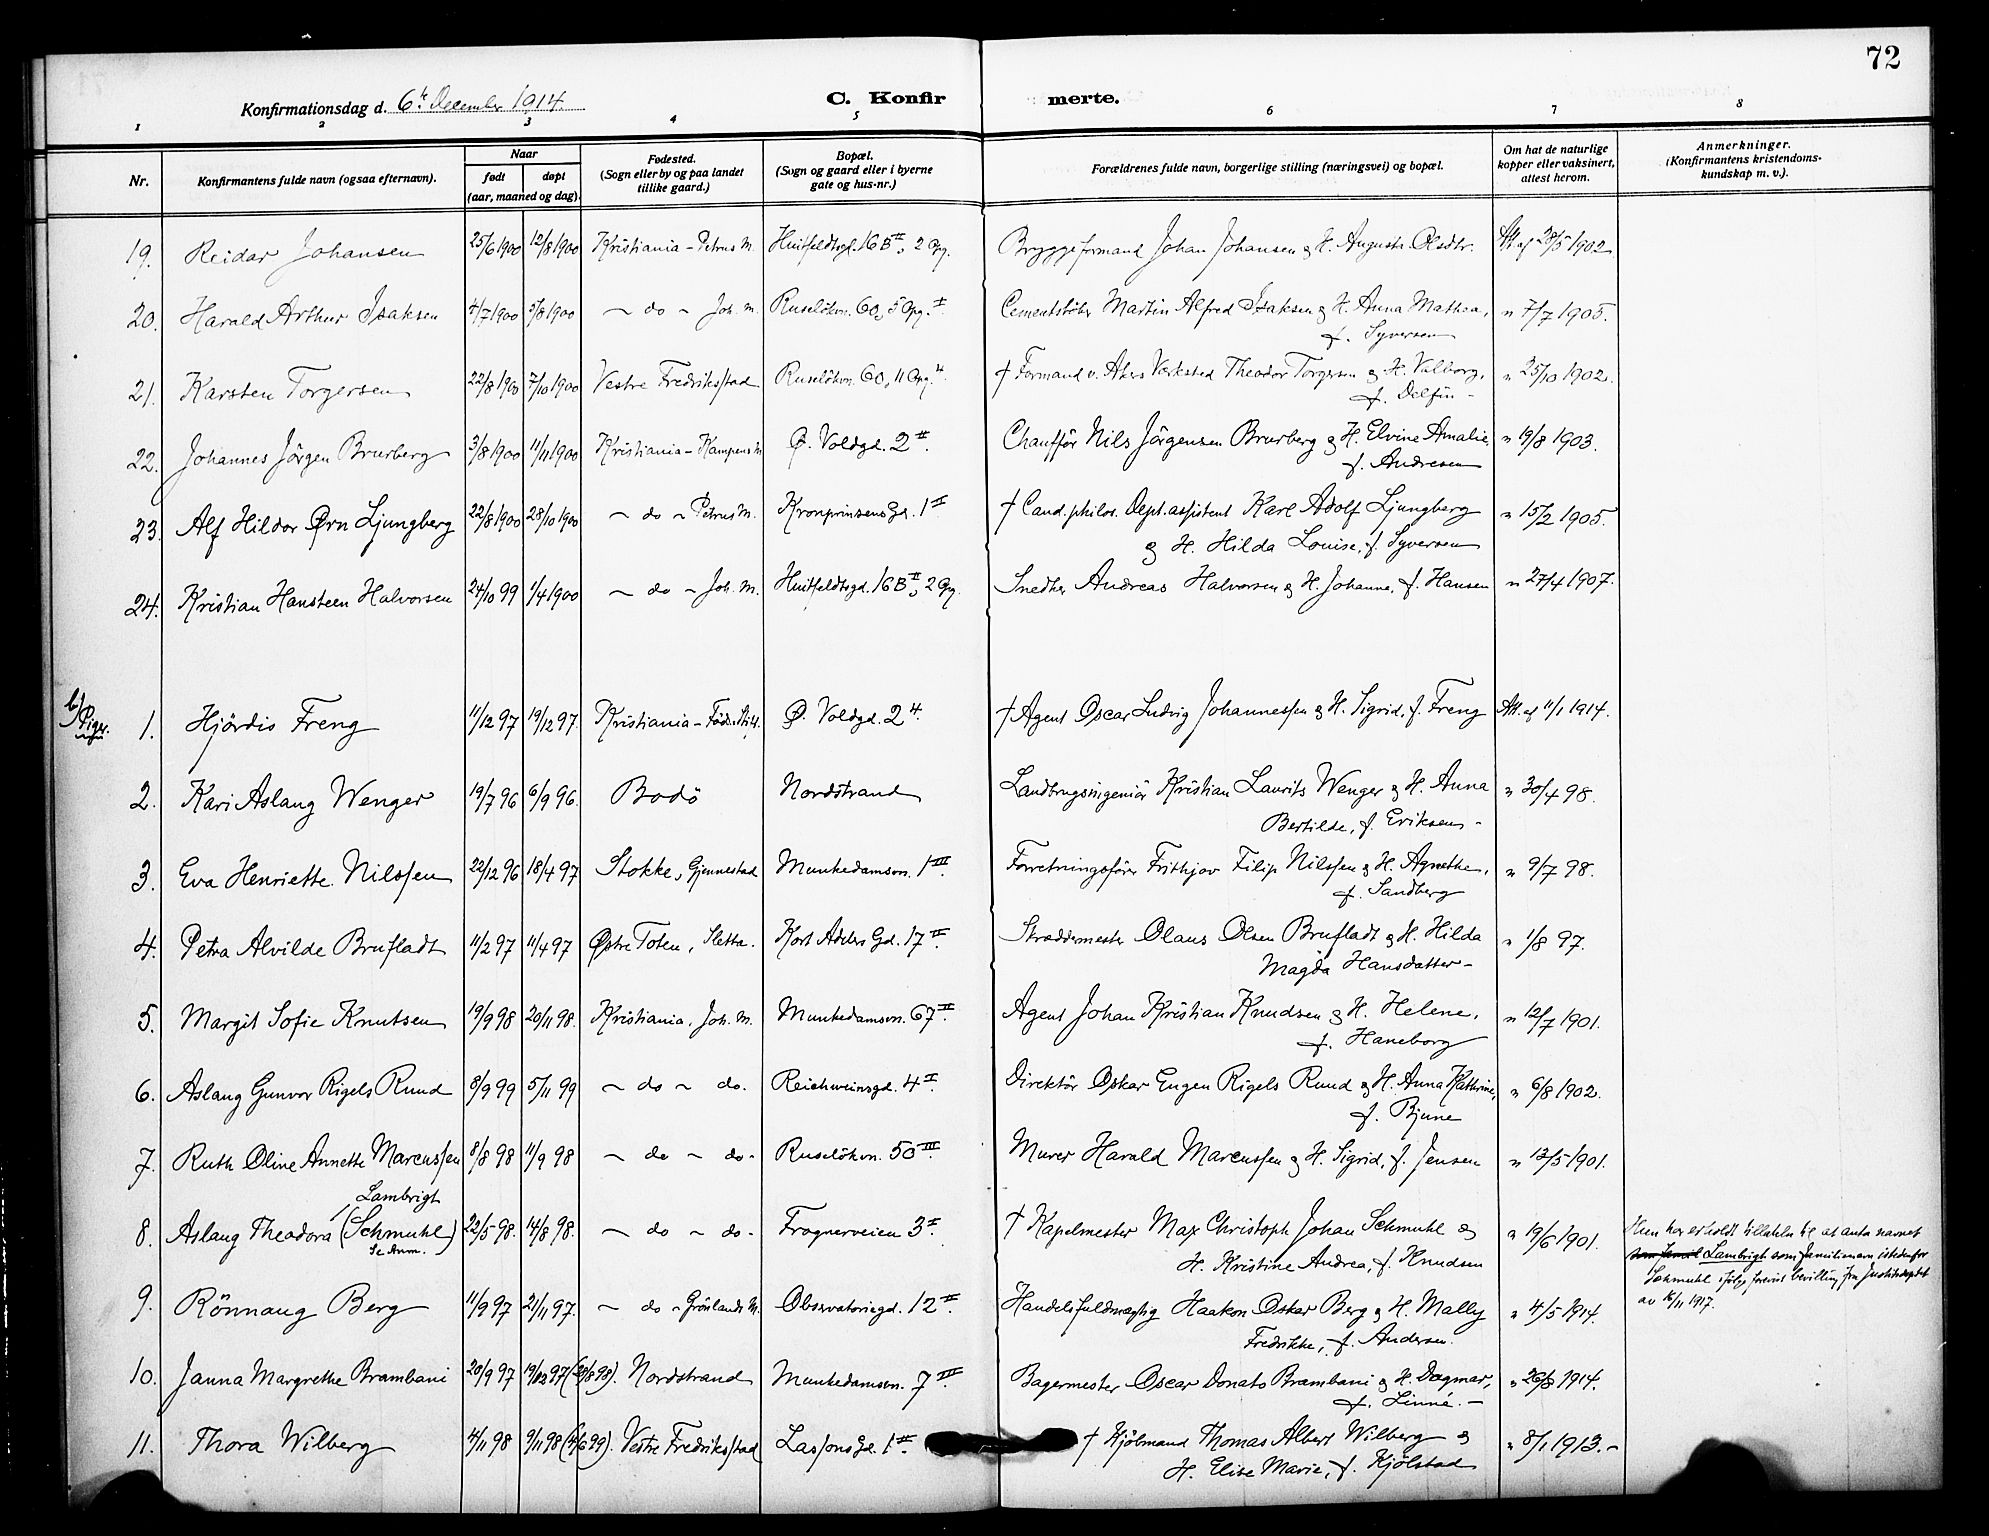 72
Konfirmationsdag d. 6te December 1914.
C. Konfirmerte.
1 2 3 4 5 6 7 8
Nr. Konfirmantens fulde navn (ogsaa efternavn). Naar født døpt (aar, maaned og dag). Fødested. (Sogn eller by og paa landet tillike gaard.) Bopæl. (Sogn og gaard eller i byerne gate og hus-nr.) Forældrenes fulde navn, borgerlige stilling (næringsvei) og bopæl. Om hat de naturlige kopper eller vaksinert, attest herom. Anmerkninger. (Konfirmantens kristendoms-kundskap m. v.).
19. Reidar Johansen 25/6 1900 12/8 1900 Kristiania - Petrus M. Huitfeldtsgd. 16 B II, 2 Opg. Bryggeformand Johan Johansen & H. Augusta Olsdtr. Att. af 28/5 1902
20. Harald Arthur Isaksen 4/7 1900 5/8 1900 ~ do ~ Joh. M. Ruseløkvn. 60, 5 Opg. I Cementstöber Martin Alfred Isaksen & H. Anna Mathea, " 7/7 1905.
f. Syversen
21. Karsten Torgersen 22/8 1900 7/10 1900 Vestre Fredriksstad Ruselökvn. 60, 11 Opg. 4. † Formand v. Akers Værksted Theodor Torgersen & H. Valborg, " 25/10 1902.
f. Delfin -
22. Johannes Jörgen Brurberg 3/8 1900 11/11 1900 Kristiania - Kampens M Ø. Voldgd. 2 II. Chaufför Nils Jörgensen Brurberg & H. Elvine Amalie, " 19/8 1903.
f. Andresen
23. Alf Hildor Ørn Ljungberg 22/8 1900 28/10 1900 ~ do ~ Petrus M. Kronprinsens Gd. 1 II † Cand. philos. Dept. assistent Karl Adolf Ljungberg " 15/2 1905.
& H. Hilda Louise, f. Syversen
24. Kristian Hansteen Halvorsen 24/10 99 1/4 1900 ~ do ~ Joh. M. Huitfeldtsgd. 16 B II, 2 Opg. Snedker Andreas Halvorsen & H. Johanne, f. Hansen " 27/4 1907.
b/ Piger.
1. Hjördis Freng 11/12 97 19/12 97. Kristiania - Föds. Stift. Ø. Voldgd. 2 4. † Agent Oscar Ludvig Johannessen & H. Sigrid, f. Freng Att. af 11/1 1914.
2. Kari Aslaug Wenger 19/7 96 6/9 96. Bodö Nordstrand Landbrugsingeniör Kristian Laurits Wenger & H. Anna " 30/4 98.
Bertilde, f. Eriksen -
3. Eva Henriette Nilssen 22/12 96 18/4 97 Stokke, Gjennestad Munkedamsvn. 1 III. Forretningsförer Frithjov Filip Nilssen & H. Agnethe, " 9/7 98.
f. Sandberg
4. Petra Alvilde Brufladt 11/2 97 11/4 97 Østre Toten, Sletta. Kort Adelers Gd. 17 II. Skræddermester Olaus Olsen Brufladt & H. Hilda " 1/8 97.
Magda Hansdatter -
5. Margit Sofie Knutsen 19/9 98 20/11 98. Kristiania, Joh. M. Munkedamsvn. 67 II. Agent Johan Kristian Knudsen & H. Helene, " 12/7 1901.
f. Haneborg
6. Aslaug Gunvor Rigels Ruud 8/9 99 5/11 99 ~ do ~ do. Reichweinsgd. 4 I. Direktör Oskar Eugen Rigels Ruud & H. Anna Kathrine, " 6/8 1902.
f. Bjune
7. Ruth Oline Annette Marcussen 8/8 98 11/9 98 ~ do ~ do - Ruselökvn. 50 III. Murer Harald Marcussen & H. Sigrid, f. Jensen " 13/5 1901.
Lambrigt
8. Aslaug Theodora (Schmuhl) 22/5 98. 14/8 98. ~ do ~ do - Frognerveien 3 I. † Kapelmester Max Christoph Johan Schmuhl & " 19/6 1901. Hun har erholdt tilladelse til at anta navnet
Se Anm. H. Kristine Andrea, f. Knudsen Lambrigt som familienavn istedenfor
Schmuhl ifölge forevist bevilling fra Justitsdeptet
av 16/11 1917.
9. Rönnaug Berg 11/9 97 21/11 97. ~ do ~ Grönlands M. Observatoriegd. 12 II. Handelsfuldmægtig Haakon Oskar Berg & H. Mally " 4/5 1914.
Fredrikke, f. Andersen.
10. Janna Margrethe Brambani 20/9 97 19/12 97 (28/8 98). Nordstrand Munkedamsvn. 7 III. Bagermester Oscar Donato Brambani & H. Dagmar, " 26/8 1914.
f. Linné. -
11. Thora Wilberg 4/11 98 9/11 98 (4/6 99). Vestre Fredriksstad Lassons Gd. 1 II. † Kjöbmand Thomas Albert Wilberg & " 8/1 1913. -
H. Elise Marie, f. Kjölstad